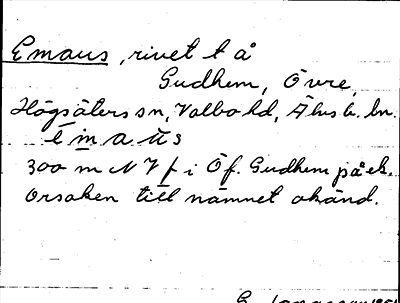 Emaus, rivet t å
Gudhem, Övre,
Högsäters sn, Valbo hd, Älvsb. ln.
ēmaŭs
300 m N V f i Öf. Gudhem på ek.
Orsaken till namnet okänd.